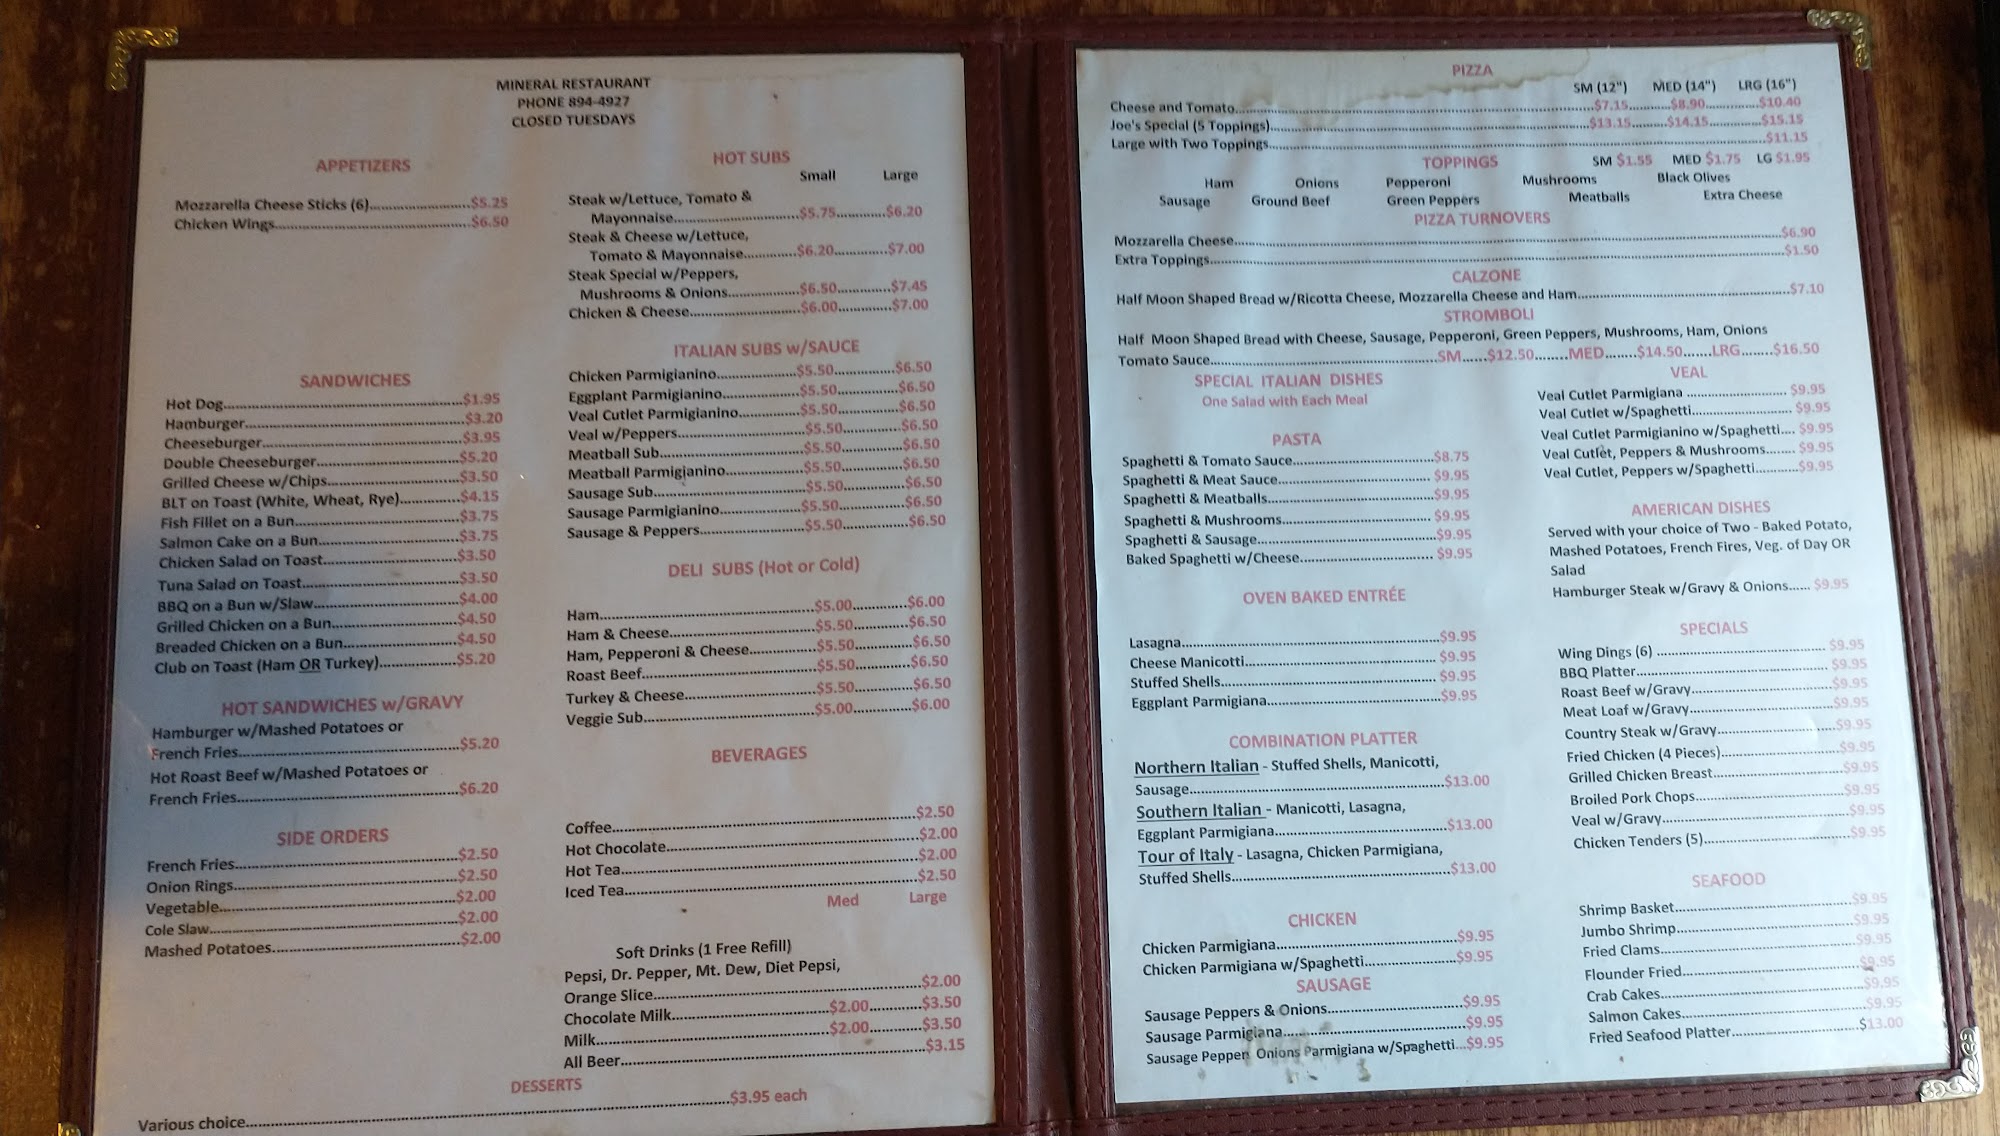 MINERAL RESTAURANT
PHONE 894-4927
CLOSED TUESDAYS
APPETIZERS
Mozzarella Cheese Sticks (6)..........$5.25
Chicken Wings..........$6.50
SANDWICHES
Hot Dog..........$1.95
Hamburger..........$3.20
Cheeseburger..........$3.95
Double Cheeseburger..........$5.20
Grilled Cheese w/Chips..........$3.50
BLT on Toast (White, Wheat, Rye)..........$4.15
Fish Fillet on a Bun..........$3.75
Salmon Cake on a Bun..........$3.75
Chicken Salad on Toast..........$3.50
Tuna Salad on Toast..........$3.50
BBQ on a Bun w/Slaw..........$4.00
Grilled Chicken on a Bun..........$4.50
Breaded Chicken on a Bun..........$4.50
Club on Toast (Ham OR Turkey)..........$5.20
HOT SANDWICHES w/GRAVY
Hamburger w/Mashed Potatoes or
French Fries..........$5.20
Hot Roast Beef w/Mashed Potatoes or
French Fries..........$6.20
SIDE ORDERS
French Fries..........$2.50
Onion Rings..........$2.50
Vegetable..........$2.00
Cole Slaw..........$2.00
Mashed Potatoes..........$2.00
HOT SUBS
Small Large
Steak w/Lettuce, Tomato &
Mayonnaise..........$5.75..........$6.20
Steak & Cheese w/Lettuce,
Tomato & Mayonnaise..........$6.20..........$7.00
Steak Special w/Peppers,
Mushrooms & Onions..........$6.50..........$7.45
Chicken & Cheese..........$6.00..........$7.00
ITALIAN SUBS w/SAUCE
Chicken Parmigianino..........$5.50..........$6.50
Eggplant Parmigianino..........$5.50..........$6.50
Veal Cutlet Parmigianino..........$5.50..........$6.50
Veal w/Peppers..........$5.50..........$6.50
Meatball Sub..........$5.50..........$6.50
Meatball Parmigianino..........$5.50..........$6.50
Sausage Sub..........$5.50..........$6.50
Sausage Parmigianino..........$5.50..........$6.50
Sausage & Peppers..........$5.50..........$6.50
DELI SUBS (Hot or Cold)
Ham..........$5.00..........$6.00
Ham & Cheese..........$5.50..........$6.50
Ham, Pepperoni & Cheese..........$5.50..........$6.50
Roast Beef..........$5.50..........$6.50
Turkey & Cheese..........$5.50..........$6.50
Veggie Sub..........$5.00..........$6.00
BEVERAGES
Coffee..........$2.50
Hot Chocolate..........$2.00
Hot Tea..........$2.00
Iced Tea..........$2.50
Med Large
Soft Drinks (1 Free Refill)
Pepsi, Dr. Pepper, Mt. Dew, Diet Pepsi,
Orange Slice..........$2.00
Chocolate Milk..........$2.00..........$3.50
Milk..........$2.00..........$3.50
All Beer..........$3.15
DESSERTS
Various choice..........$3.95 each
PIZZA
SM (12") MED (14") LRG (16")
Cheese and Tomato..........$7.15..........$8.90..........$10.40
Joe's Special (5 Toppings)..........$13.15..........$14.15..........$15.15
Large with Two Toppings..........$11.15
TOPPINGS SM $1.55 MED $1.75 LG $1.95
Ham Onions Pepperoni Mushrooms Black Olives
Sausage Ground Beef Green Peppers Meatballs Extra Cheese
PIZZA TURNOVERS
Mozzarella Cheese..........$6.90
Extra Toppings..........$1.50
CALZONE
Half Moon Shaped Bread w/Ricotta Cheese, Mozzarella Cheese and Ham..........$7.10
STROMBOLI
Half Moon Shaped Bread with Cheese, Sausage, Pepperoni, Green Peppers, Mushrooms, Ham, Onions
Tomato Sauce..........SM......$12.50.......MED.......$14.50......LRG.......$16.50
SPECIAL ITALIAN DISHES
One Salad with Each Meal
PASTA
Spaghetti & Tomato Sauce..........$8.75
Spaghetti & Meat Sauce..........$9.95
Spaghetti & Meatballs..........$9.95
Spaghetti & Mushrooms..........$9.95
Spaghetti & Sausage..........$9.95
Baked Spaghetti w/Cheese..........$9.95
OVEN BAKED ENTRÉE
Lasagna..........$9.95
Cheese Manicotti..........$9.95
Stuffed Shells..........$9.95
Eggplant Parmigiana..........$9.95
COMBINATION PLATTER
Northern Italian - Stuffed Shells, Manicotti,
Sausage..........$13.00
Southern Italian - Manicotti, Lasagna,
Eggplant Parmigiana..........$13.00
Tour of Italy - Lasagna, Chicken Parmigiana,
Stuffed Shells..........$13.00
CHICKEN
Chicken Parmigiana..........$9.95
Chicken Parmigiana w/Spaghetti..........$9.95
SAUSAGE
Sausage Peppers & Onions..........$9.95
Sausage Parmigiana..........$9.95
Sausage Pepper Onions Parmigiana w/Spaghetti...$9.95
VEAL
Veal Cutlet Parmigiana..........$9.95
Veal Cutlet w/Spaghetti..........$9.95
Veal Cutlet Parmigianino w/Spaghetti.... $9.95
Veal Cutlet, Peppers & Mushrooms....... $9.95
Veal Cutlet, Peppers w/Spaghetti..........$9.95
AMERICAN DISHES
Served with your choice of Two - Baked Potato,
Mashed Potatoes, French Fires, Veg. of Day OR
Salad
Hamburger Steak w/Gravy & Onions...... $9.95
SPECIALS
Wing Dings (6)..........$9.95
BBQ Platter..........$9.95
Roast Beef w/Gravy..........$9.95
Meat Loaf w/Gravy..........$9.95
Country Steak w/Gravy..........$9.95
Fried Chicken (4 Pieces)..........$9.95
Grilled Chicken Breast..........$9.95
Broiled Pork Chops..........$9.95
Veal w/Gravy..........$9.95
Chicken Tenders (5)..........$9.95
SEAFOOD
Shrimp Basket..........$9.95
Jumbo Shrimp..........$9.95
Fried Clams..........$9.95
Flounder Fried..........$9.95
Crab Cakes..........$9.95
Salmon Cakes..........$9.95
Fried Seafood Platter..........$13.00